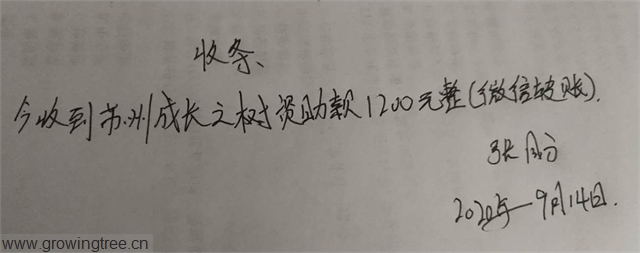 收条
今收到苏州成长之树资助款1200元整(微信转账).
张
2020年9月14日.
www.growingtree.cn